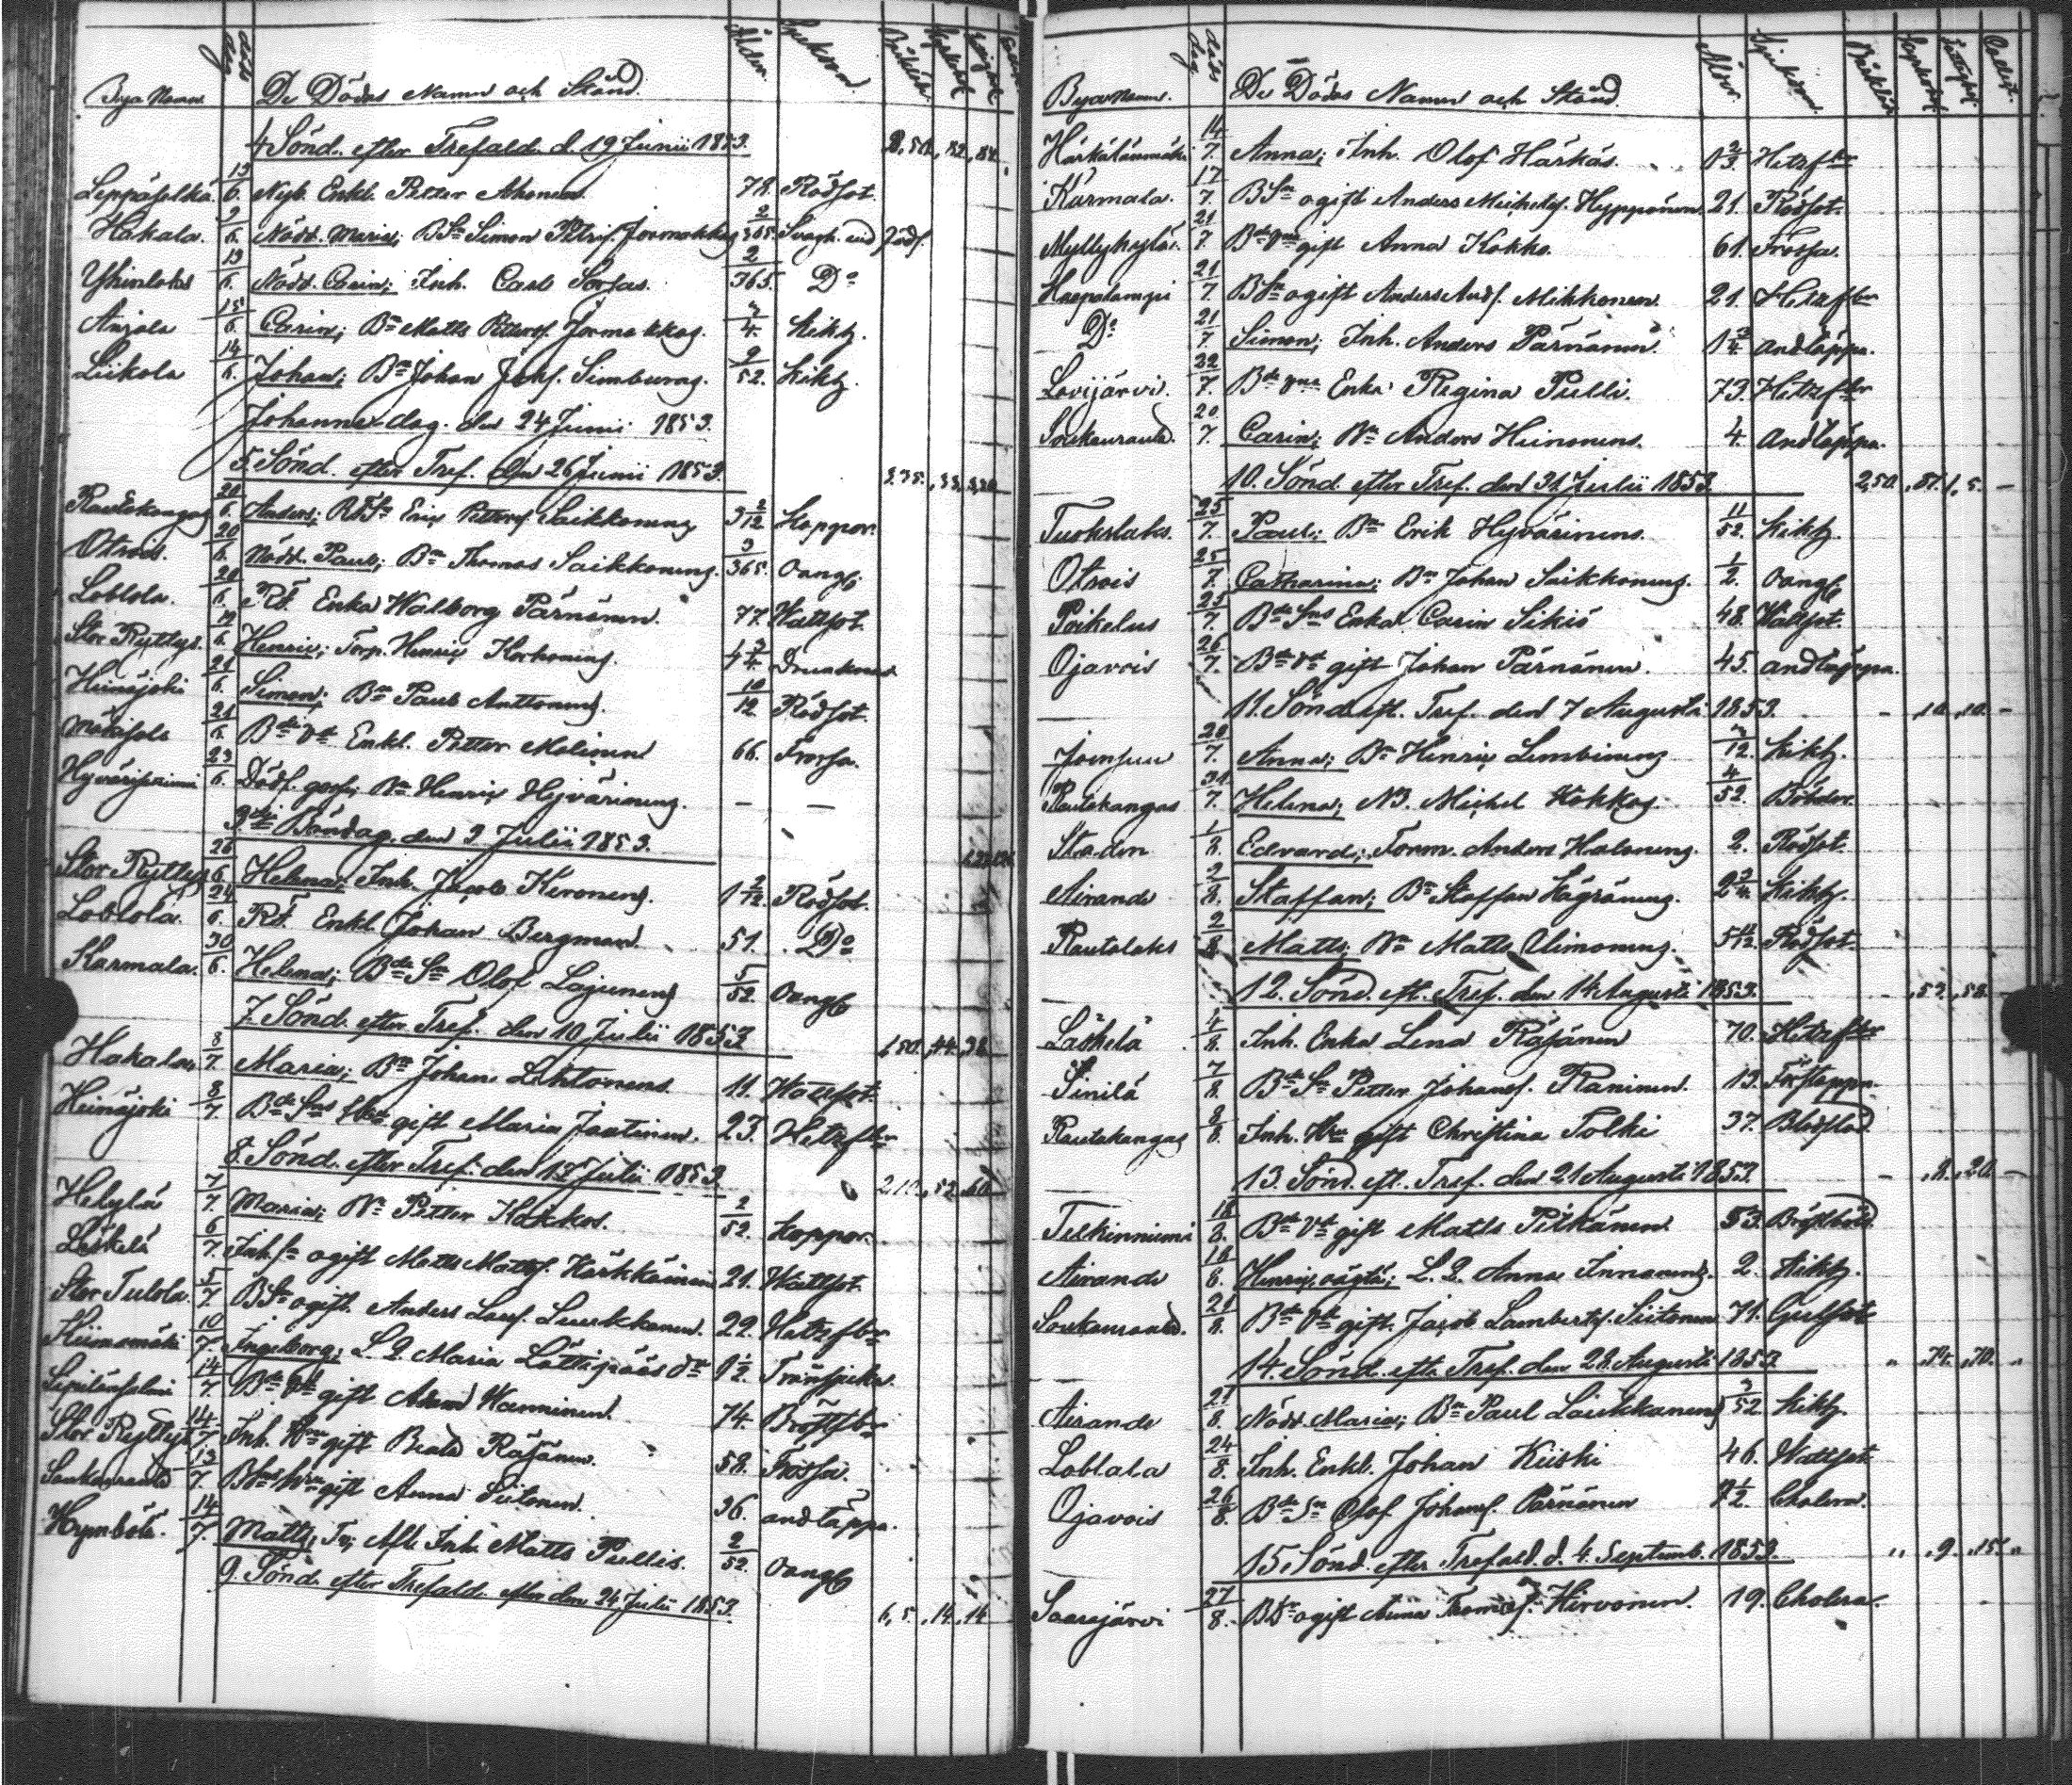 Bya Namn. döds dag De Dödas Namn och Stånd. Ålder. Sjukdom
4 Sönd. efter Trefald. d. 19 Junii 1853.
Leppäselkä. 13/6. Enkl. Petter Ahonen. 78. Rödsot.
Hakala. 6. Nödd. Maria; BSn Simon Jormakkas 2/365. Svagh. vid föds.
13/6. Nödd. Carin; Inh. Carl Sorsas. 2/365. Do
Anjala 15/6. Carin; Bn Matts Petterss. Jormakkas. 3/4. Kikh.
Liikola 14/6. Johan; Bn Johan Johs. Simburas. 9/52. Kikh.
Johanne dag. den 24 Junii 1853.
5. Sönd. efter Tref. den 26 Junii 1853.
Rautakangas 20/6. Anders; Eric Petterss. Saikkonens 3 2/12 Koppor.
Otrois. 20/6. Nödd. Paul; Bn Thomas Saikkonens. 3/365. Oangf.
Loblola. 20/6. Rt. Enka Walborg Pärnänen. 77. Wattsot.
Stor Ryttys. 19/6. Henric; Torp. Henric Korhonens. 3/4. Drunknad
Heinäjoki 21/6. Simon; Bn Paul Anttonens. 10/12. Rödsot.
21/6. Bde Vd Enkl. Petter Molinen 66. Frossa.
Hyväriniemi 23/6. Dödf. goss; Bn Henric Hyvärinens. — —
3dje Böndag. den 3 Julii 1853.
Stor Ryttys 26/6 Helena; Inh. Jacob Keronens. 1 2/12. Rödsot.
Loblola. 24/6. Rt. Enkl. Johan Bergman. 51. Do
Karmala. 30/6. Helena; Bde Sn Olof Lajunens 5/52. Oangf
7 Sönd. efter Tref. den 10 Julii 1853 1,50. ,44. 38
Hakala, 8/7. Maria; Bn Johan Lehtonens. 11. Wattsot.
Heinäjoki 8/7. Bde Sns Hru gift Maria Jaatinen. 23. Hetzfbr
8. Sönd. efter Tref. den 17 Julii 1853. 2,10. ,52. ,60.
Helylä 7/7. Maria; Bn Petter Kokkos. 2/52. Koppor.
Läskelä 6/7. Inh. Sn ogift Matts Mattss. Härkkänin 21. Wattsot.
Stor Tulola. 5/7. BSn ogift. Anders Larss. Leukkanen. 22. Hetzfbr
10/7. Ingeborg; L. Q. Maria Lättipääs dr 1 1/2. Tränsjuka.
14/7. Bde Vd gift Adam Wanninen. 74. Bröstfbr
Stor Ryttys 14/7. Inh. Hru gift Beata Räsänen. 58. Frossa.
Soukanranta 13/7. Bdns Hru gift Anna Siitonen. 36. andtäppa.
Hymbölä. 14/7. Matts, Inh. Matts Pullis. 2/52. Oangf
9. Sönd. efter Trefald. efter den 24 Julii 1853. 6,5. ,14. ,14
Byar Namn. döds dag De Dödas Namn och Stånd. Ålder. Sjukdom.
14/7. Anna; Inh. Olof Härkäs. 1 2/3. Hetzfbr
Karmala. 17/7. BSn ogift Anders Michelss. Hypponen. 21. Rödsot.
Myllykylä. 21/7. gift Anna Kokko. 61. Frossa.
Haapalampi 21/7. BSn ogift Anders Andss. Mikkonen. 21. Hetzfbr
Do 21/7. Simon; Inh. Anders Pärnänen. 1 3/4. andtäppa.
Lavijärvi. 22/7. Enka Regina Pulli. 73. Hetzfbr
Soukanranta. 20/7. Carin; Bn Anders Heinonens. 4. Andtäppa.
10. Sönd. efter Tref. den 31 Julii 1853. 2,50. ,87. 1,5. —
Tuokslaks. 25/7. Paul; Bn Erik Hyvärinens. 11/52. Kikh.
Otrois 25/7. Catharina; Bn Johan Saikkonens. 1/2. Oangf.
Poikelus 25/7. Bde Sns Enka Carin Sikiö 48. Wattsot.
Ojavois 26/7. Bde Vd gift Johan Pärnänen. 45. andtäppa.
11. Sönd. eft. Tref. den 7 Augusti 1853. - ,10. ,10. —
Joensuu 28/7. Anna; Bn Henric Limbinens 3/12. Kikh.
Rautakangas 31/7. Helena; NB. Michel Kokkos. 4/52. Bölder.
Staden 1/8. Edvard; Form. Anders Halonens. 2. Rödsot.
Airanda 2/8. Staffan; Bn Staffan Kägränens. 2 3/4. Kikh.
Rautalaks 2/8 Matts; Bn Matts Alimonens. 5 11/12. Rödsot.
12. Sönd. eft. Tref. den 14 Augusti 1853. - ,52. ,58. —
Läskelä 4/8. Inh. Enka Lena Räsänen 70. Hetzfbr
Sinilä 7/8. Bde Sn Petter Johanss. Raninen. 13. Förstoppn.
Rautakangas 8/8. Inh. Hru gift Christina Tolki 37. Blodstört
13. Sönd. eft. Tref. den 21 Augusti 1853. - ,8. ,20. —
Telkinniemi 18/8. Bde Vd gift Matts Pitkänen. 53. Bröstböld
Airanda 18/8. Henric, oägta; L. Q. Anna Innanens. 2. Kikh.
Soukanranta. 21/8. Bde Vd gift Jacob Lambertss. Siitonen 71. Gulsot
14. Sönd. eft. Tref. den 28. Augusti 1853 " ,70. ,70. "
Airanda 21/8. Nödd. Maria; Bn Paul Laukkanens 3/52. Kikh.
Loblala 24/8. Inh. Enkl. Johan Kiiski 46. Wattsot
Ojavois 26/8. Bde Sn Olof Johanss. Pärnänen 7 1/2. Cholera.
15. Sönd. efter Trefald. d. 4. Septemb. 1853. " ,9. ,15. "
Saarejärvi 27/8. BDr ogift Anna Thomæs. Hirvonen. 19. Cholera.